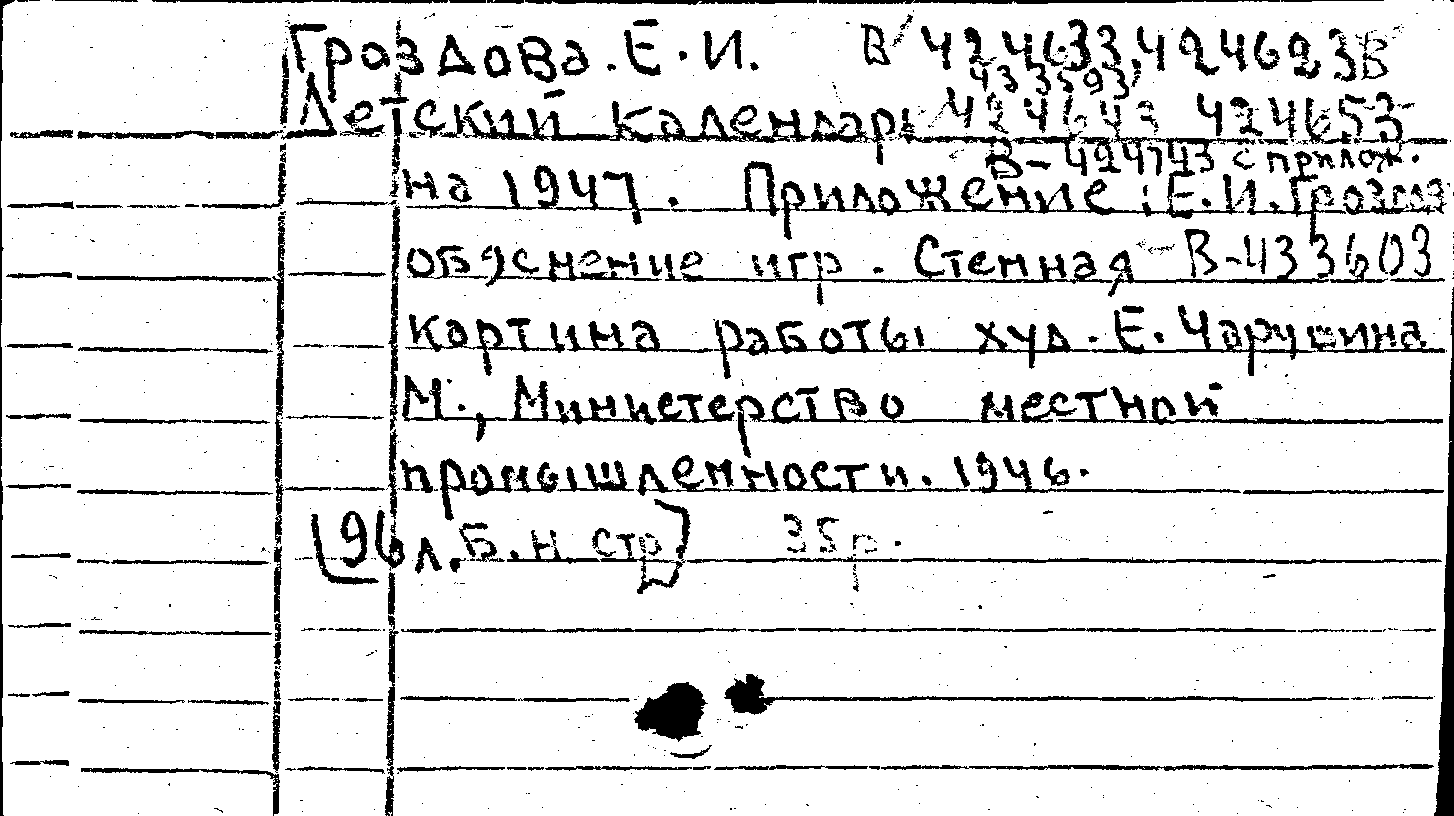 Гроздова. Е. И. В 424633, 424623 В
433593
Детский календарь 424643 424653
В-424743 с прилож.
на 1947. Приложение: Е.И. Гроздова
обяснение игр. Стенная В-433603
картина работы худ. Е. Чарушина
М., Министерство местной
промышленности. 1946.
[96 л. Б. н. стр] 35 р.